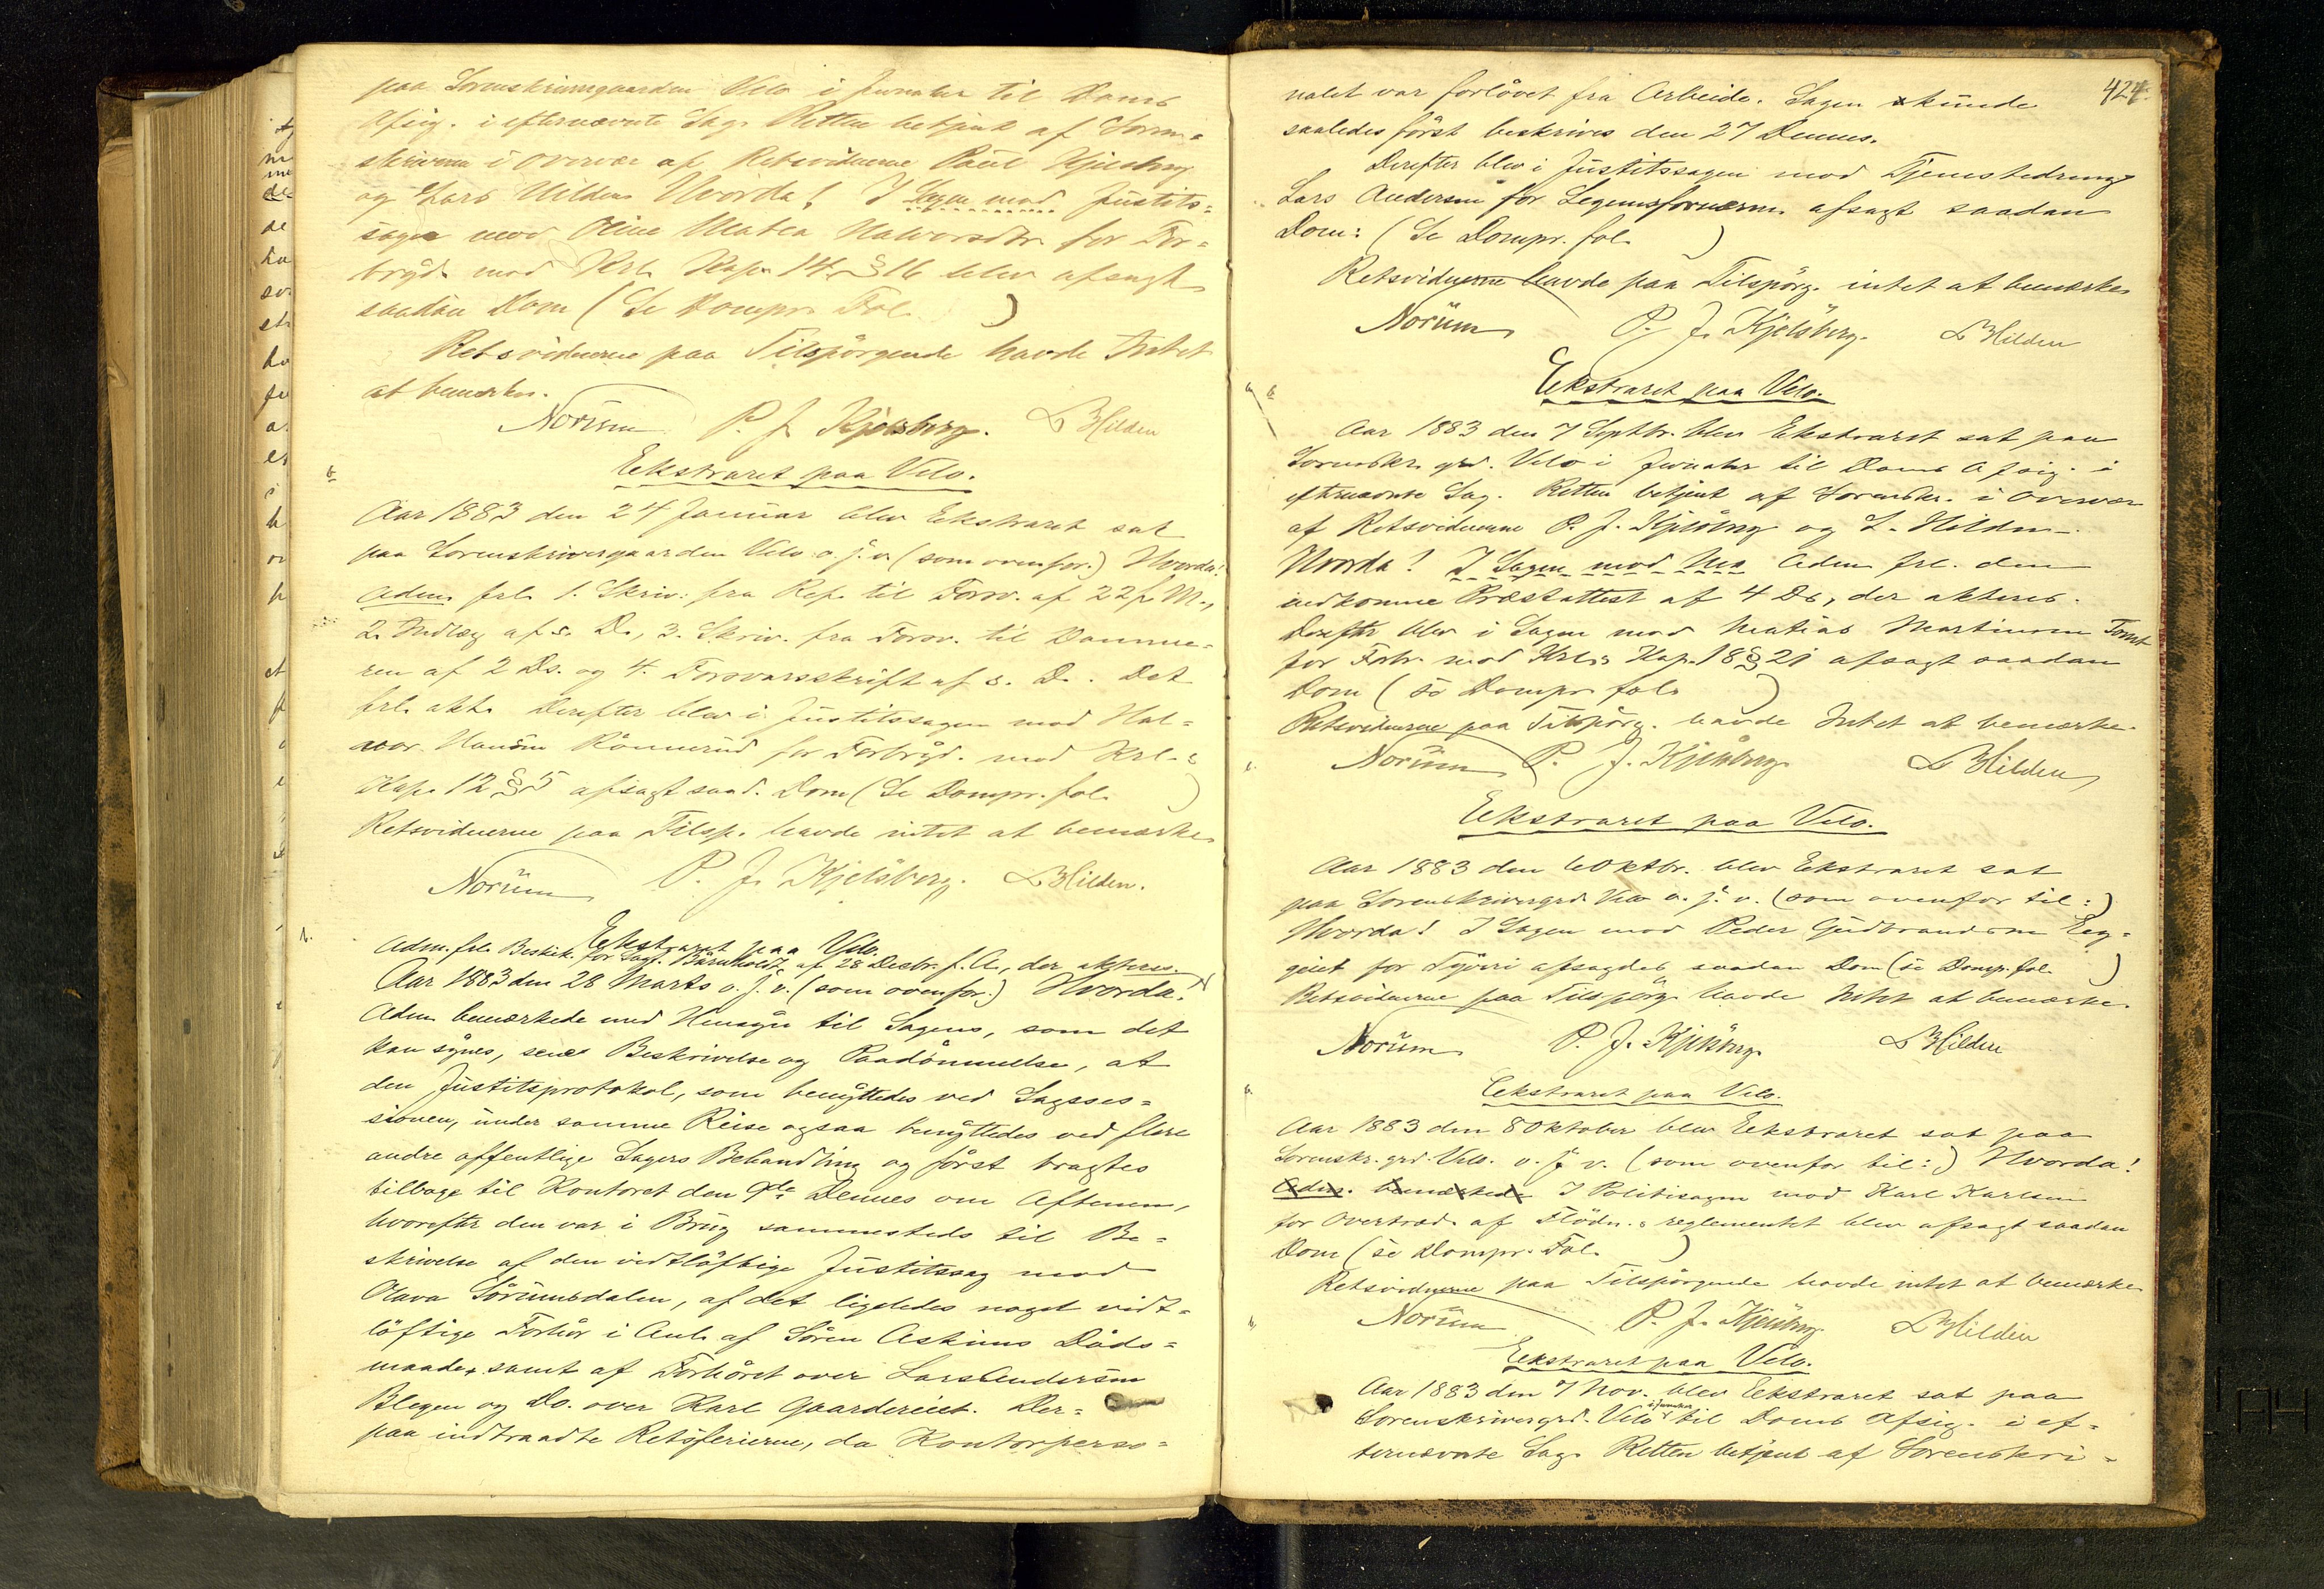 paa Sorenskrivergaarden Velo i Januar til Doms
Afsig. i efternævnte Sag. Retten betjent af Soren-
skriveren i Overvær af Retsvidnerne Paul Kjelsberg
og Lars Hilden Hvorda! I Sagen mod Justits-
sagen mod Oline Matea Halvorsdtr for For-
bryd. mod Krl. Kap. 14 § 16 blev afsagt
saadan Dom (Se Dompr. Fol. )
Retsvidnerne paa Tilspörgende havde Intet
at bemærke.
Norüm P. J. Kjelsberg. L Hilden
Eekstraret paa Velo.
Aar 1883 den 24 Januar blev Eekstraret sat
paa Sorenskrivergaarden Velo o. j. v. (som ovenfor.) Hvorda!
Adm. frl. 1. Skriv. fra Rep. til Forsv. af 22 f. M.,
2. Indlæg af s. D., 3. Skriv. fra Forsv. til Domme-
ren af 2 Ds. og 4. Forsvarsskrift af s. D. Det
frl. akt. Derefter blev i Justitssagen mod Hal-
vor Hansen Rönnerud for Forbryd. mod Krl.s
Kap. 12 § 5 afsagt saad. Dom (Se Dompr. fol. )
Retsvidnerne paa Tilsp. havde intet at bemærke
Norüm P. J. Kjelsberg. L Hilden.
Eekstraret paa Velo.
Adm. frl. Beskik. for Sagf. Bärnholdt af 28 Decbr. f. A., der akteres.
Aar 1883 den 28 Marts o. j. v. (som ovenfor.) Hvorda!
Adm. bemærkede med Hensyn til Sagens, som det
kan synes, sene Beskrivelse og Paadömmelse, at
den Justitsprotokol, som benyttedes ved Sagsses-
sionen, under samme Reise ogsaa benyttedes ved flere
andre offentlige Sagers Behandling og först bragtes
tilbage til Kontoret den 9de Dennes om Aftenen,
hvorefter den var i Brug sammesteds til Be-
skrivelse af den vidtlöftige Justitssag mod
Olava Sörumsdalen, af det ligeledes noget vidt-
löftige Forhör i Anl. af Sören Askims Döds-
maade, samt af Forhöret over Lars Andersen
Blegen og Do. over Karl Gaardereiet. Der-
paa indtraadte Retsferierne, da Kontorperso-
424.
nalet var forlövet fra Arbeide. Sagen kunde
saaledes först beskrives den 27 Dennes.
Derefter blev i Justitssagen mod Tjenestedreng
Lars Andersen for Legemsfornærm. afsagt saadan
Dom: (Se Dompr. fol. )
Retsvidnerne havde paa Tilspörg. intet at bemærke
Norüm P. J. Kjelsberg. L Hilden
Eekstraret paa Velo.
Aar 1883 den 7 Septbr. blev Eekstraret sat paa
Sorenskr. grd. Velo i Januar til Doms Afsig. i
efternævnte Sag. Retten betjent af Sorenskr. i Overvær
af Retsvidnerne P. J. Kjelsberg og L. Hilden.
Hvorda! I Sagen mod Mea Adm. frl. den
indkomne Præstattest af 4 Ds., der akteres.
Derefter blev i Sagen mod Matias Martinsen Tomt
for Forb. mod Krl.s Kap. 18 § 21 afsagt saadan
Dom (se Dompr. fol. )
Retsvidnerne paa Tilspörg. havde Intet at bemærke.
Norüm P. J. Kjelsberg L Hilden
Eekstraret paa Velo.
Aar 1883 den 6 Oktbr. blev Eekstraret sat
paa Sorenskrivergrd. Velo o. j. v. (som ovenfor til:)
Hvorda! I Sagen mod Peder Gudbrandsen Eeg-
geiet for Tyveri afsagdes saadan Dom (se Dompr. fol. )
Retsvidnerne paa Tilspörg. havde Intet at bemærke.
Norüm P. J. Kjelsberg L Hilden
Eekstraret paa Velo.
Aar 1883 den 8 Oktober blev Eekstraret sat paa
Sorenskr. grd. Velo. o. j. v. (som ovenfor til:) Hvorda!
Adm. bemærkede I Politisagen mod Karl Karlsen
for Overtræd. af Flödn.s reglementet blev afsagt saadan
Dom (se Dompr. Fol. )
Retsvidnerne paa Tilspörgende havde intet at bemærke
Norüm P. J. Kjelsberg L Hilden
Eekstraret paa Velo.
Aar 1883 den 7 Nov. blev Eekstraret sat paa
Sorenskrivergrd. Velo i Januar til Doms Afsig. i ef-
ternævnte Sag. Retten betjent af Sorenskri-